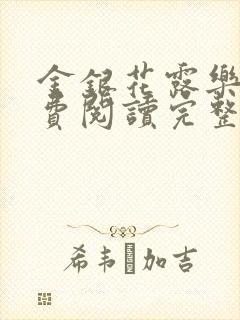 金銀花露樂
費閱讀完整
希韦加吉